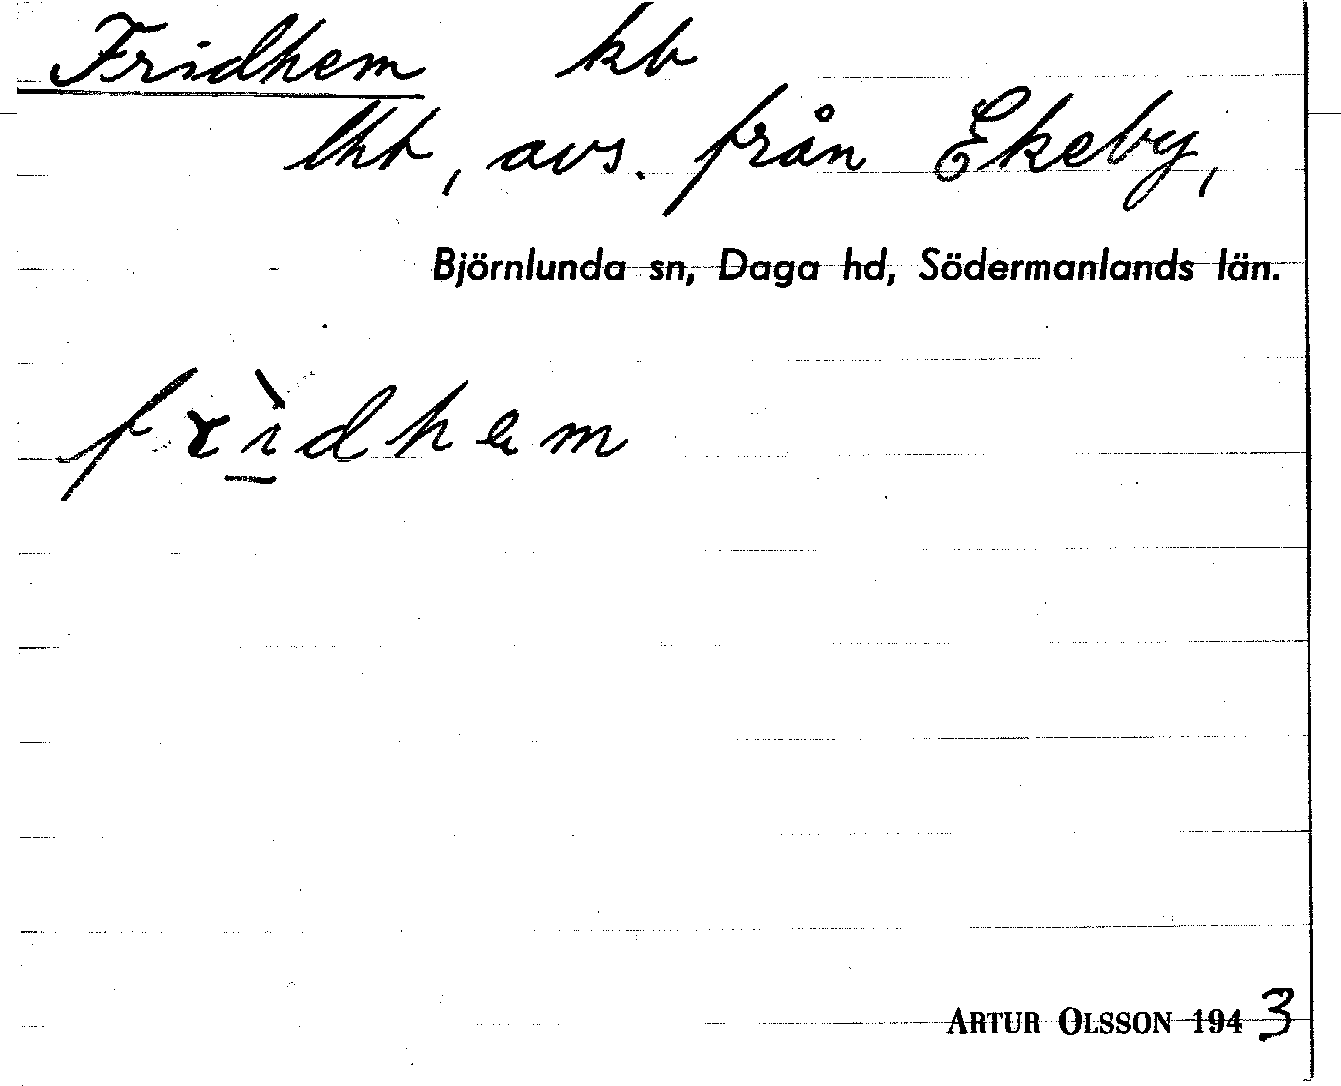 Fridhem kb
lht, avs. från Ekeby,
Björnlunda sn, Daga hd, Södermanlands län.
frì̲dhem
ARTUR OLSSON 1943